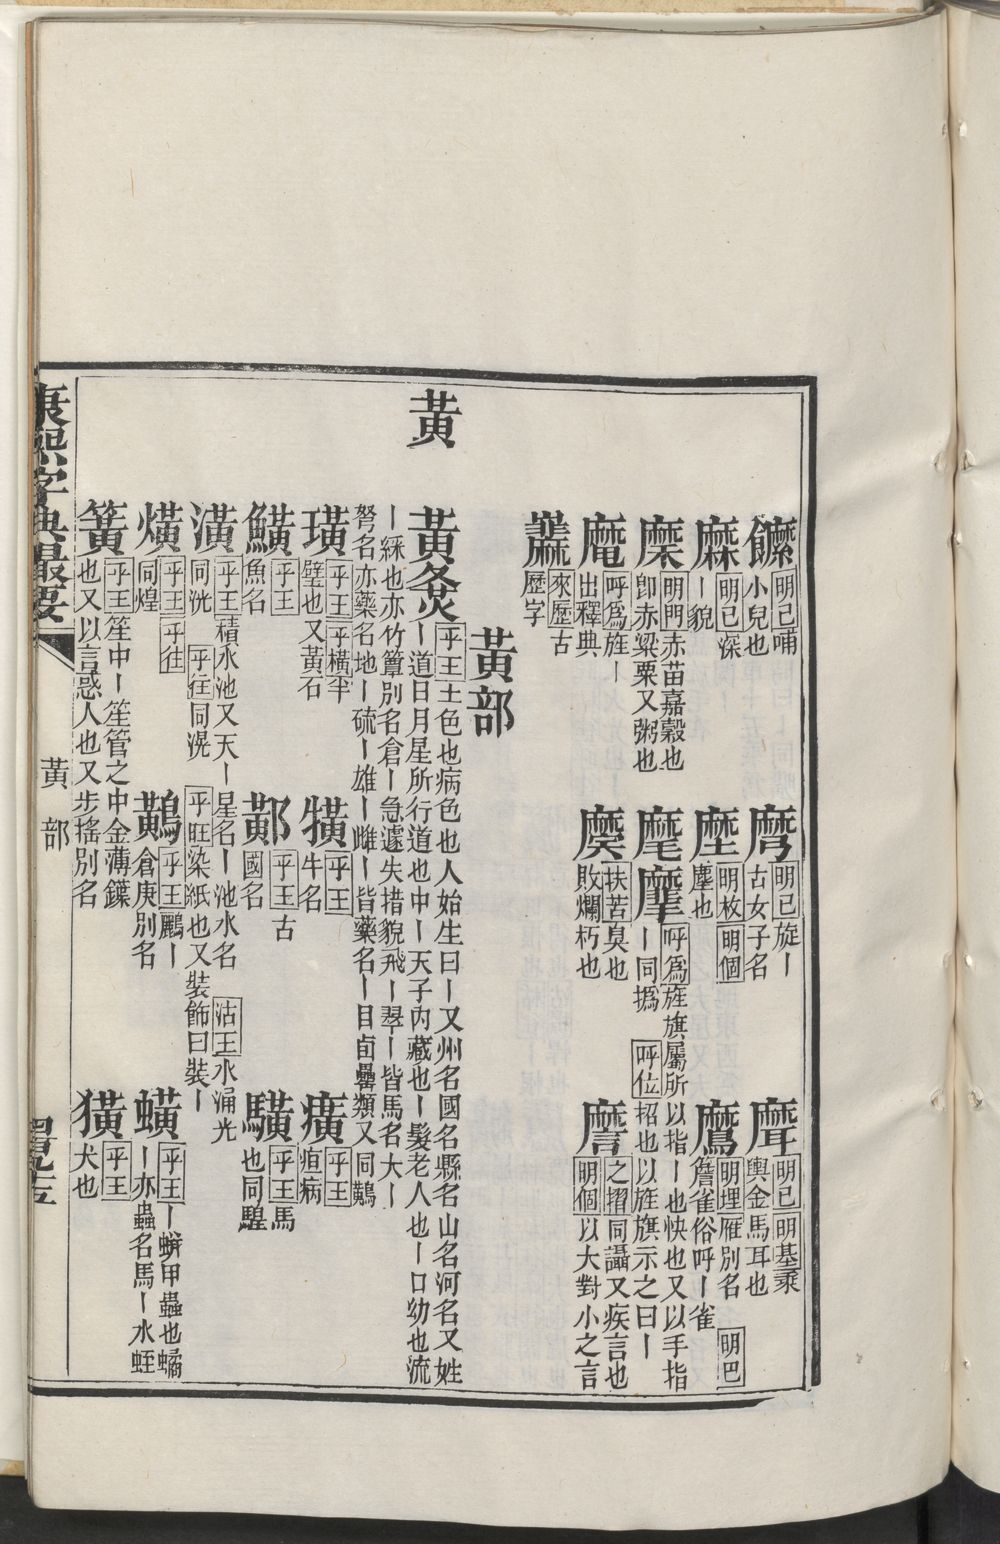 明己哺
小兒也
明己旋丨
古女子名
明己明基乘
輿金馬耳也
明己深
丨貌
明枚明個
塵也
明埋雁別名 明巴
詹雀俗呼丨雀
穈
明門赤苗嘉穀也
卽赤粱粟又粥也
麾
呼爲旌旗屬所以指丨也快也又以手指
丨同撝 呼位招也以旌旗示之曰丨
呼爲旌丨
出釋典
扶苦臭也
敗爛朽也
之摺同讘又疾言也
明個以大對小之言
來歷古
歷字
黃部
黃
黃
平王土色也病色也人始生曰丨又州名國名縣名山名河名又姓
丨道日月星所行道也中丨天子內藏也丨髮老人也丨口幼也流
丨綵也亦竹簟別名倉丨急遽失措貌飛丨翠丨皆馬名大丨
弩名亦藥名地丨硫丨雄丨雌丨皆藥名丨目卣罍類又同鷬
璜
平王平橫半
璧也又黃石
平王
牛名
癀
平王
疸病
鱑
平王
魚名
平王古
國名
騜
平王馬
也同騜
潢
平王積水池又天丨星名丨池水名 沽王水涌光
同洸 平往同滉 平旺染紙也又裝飾曰裝丨
熿
平王平往
同煌
鷬
平王鸝丨
倉庚別名
蟥
平王丨蛢甲蟲也蟠
丨亦蟲名馬丨水蛭
簧
平王笙中丨笙管之中金薄鐷
也又以言惑人也又步搖別名
獚
平王
犬也
康熙字典撮要
黃部